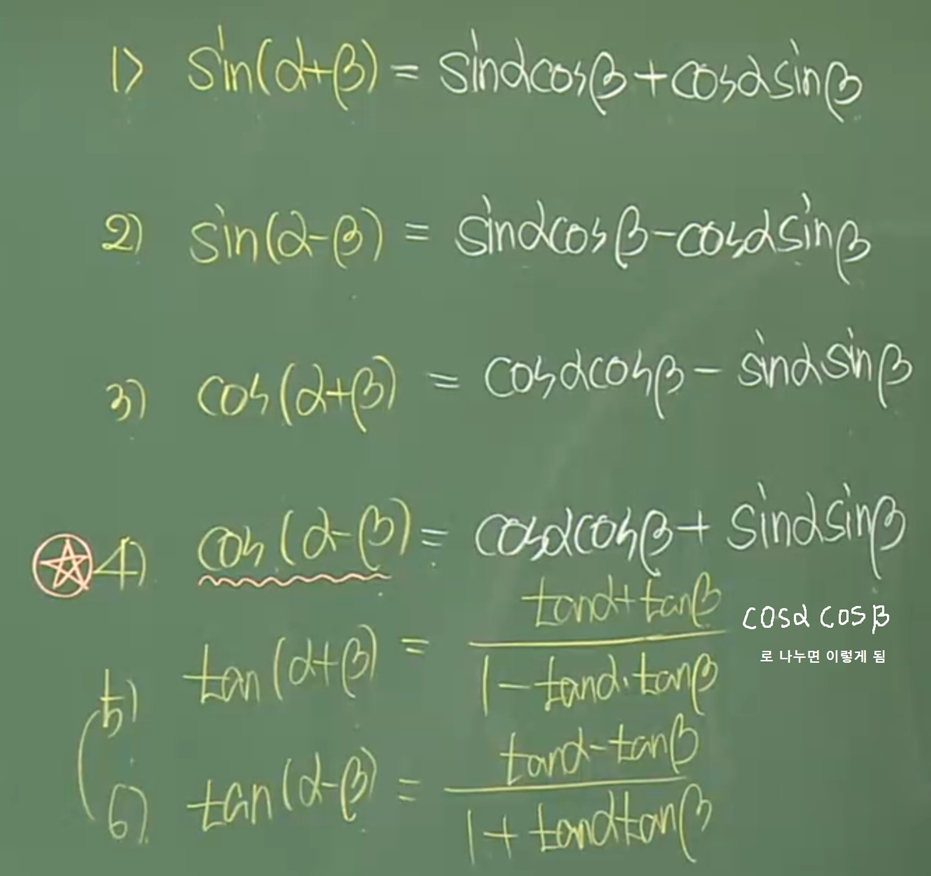 1) sin(α+β) = sinαcosβ+cosαsinβ
2) sin(α-β) = sinαcosβ-cosαsinβ
3) cos(α+β) = cosαcosβ - sinαsinβ
4) cos(α-β) = cosαcosβ+ sinαsinβ
5) tan(α+β) = tanα+tanβ
1-tanα·tanβ
cosα cosβ
로 나누면 이렇게 됨
6) tan(α-β) = tanα-tanβ
1+tanαtanβ